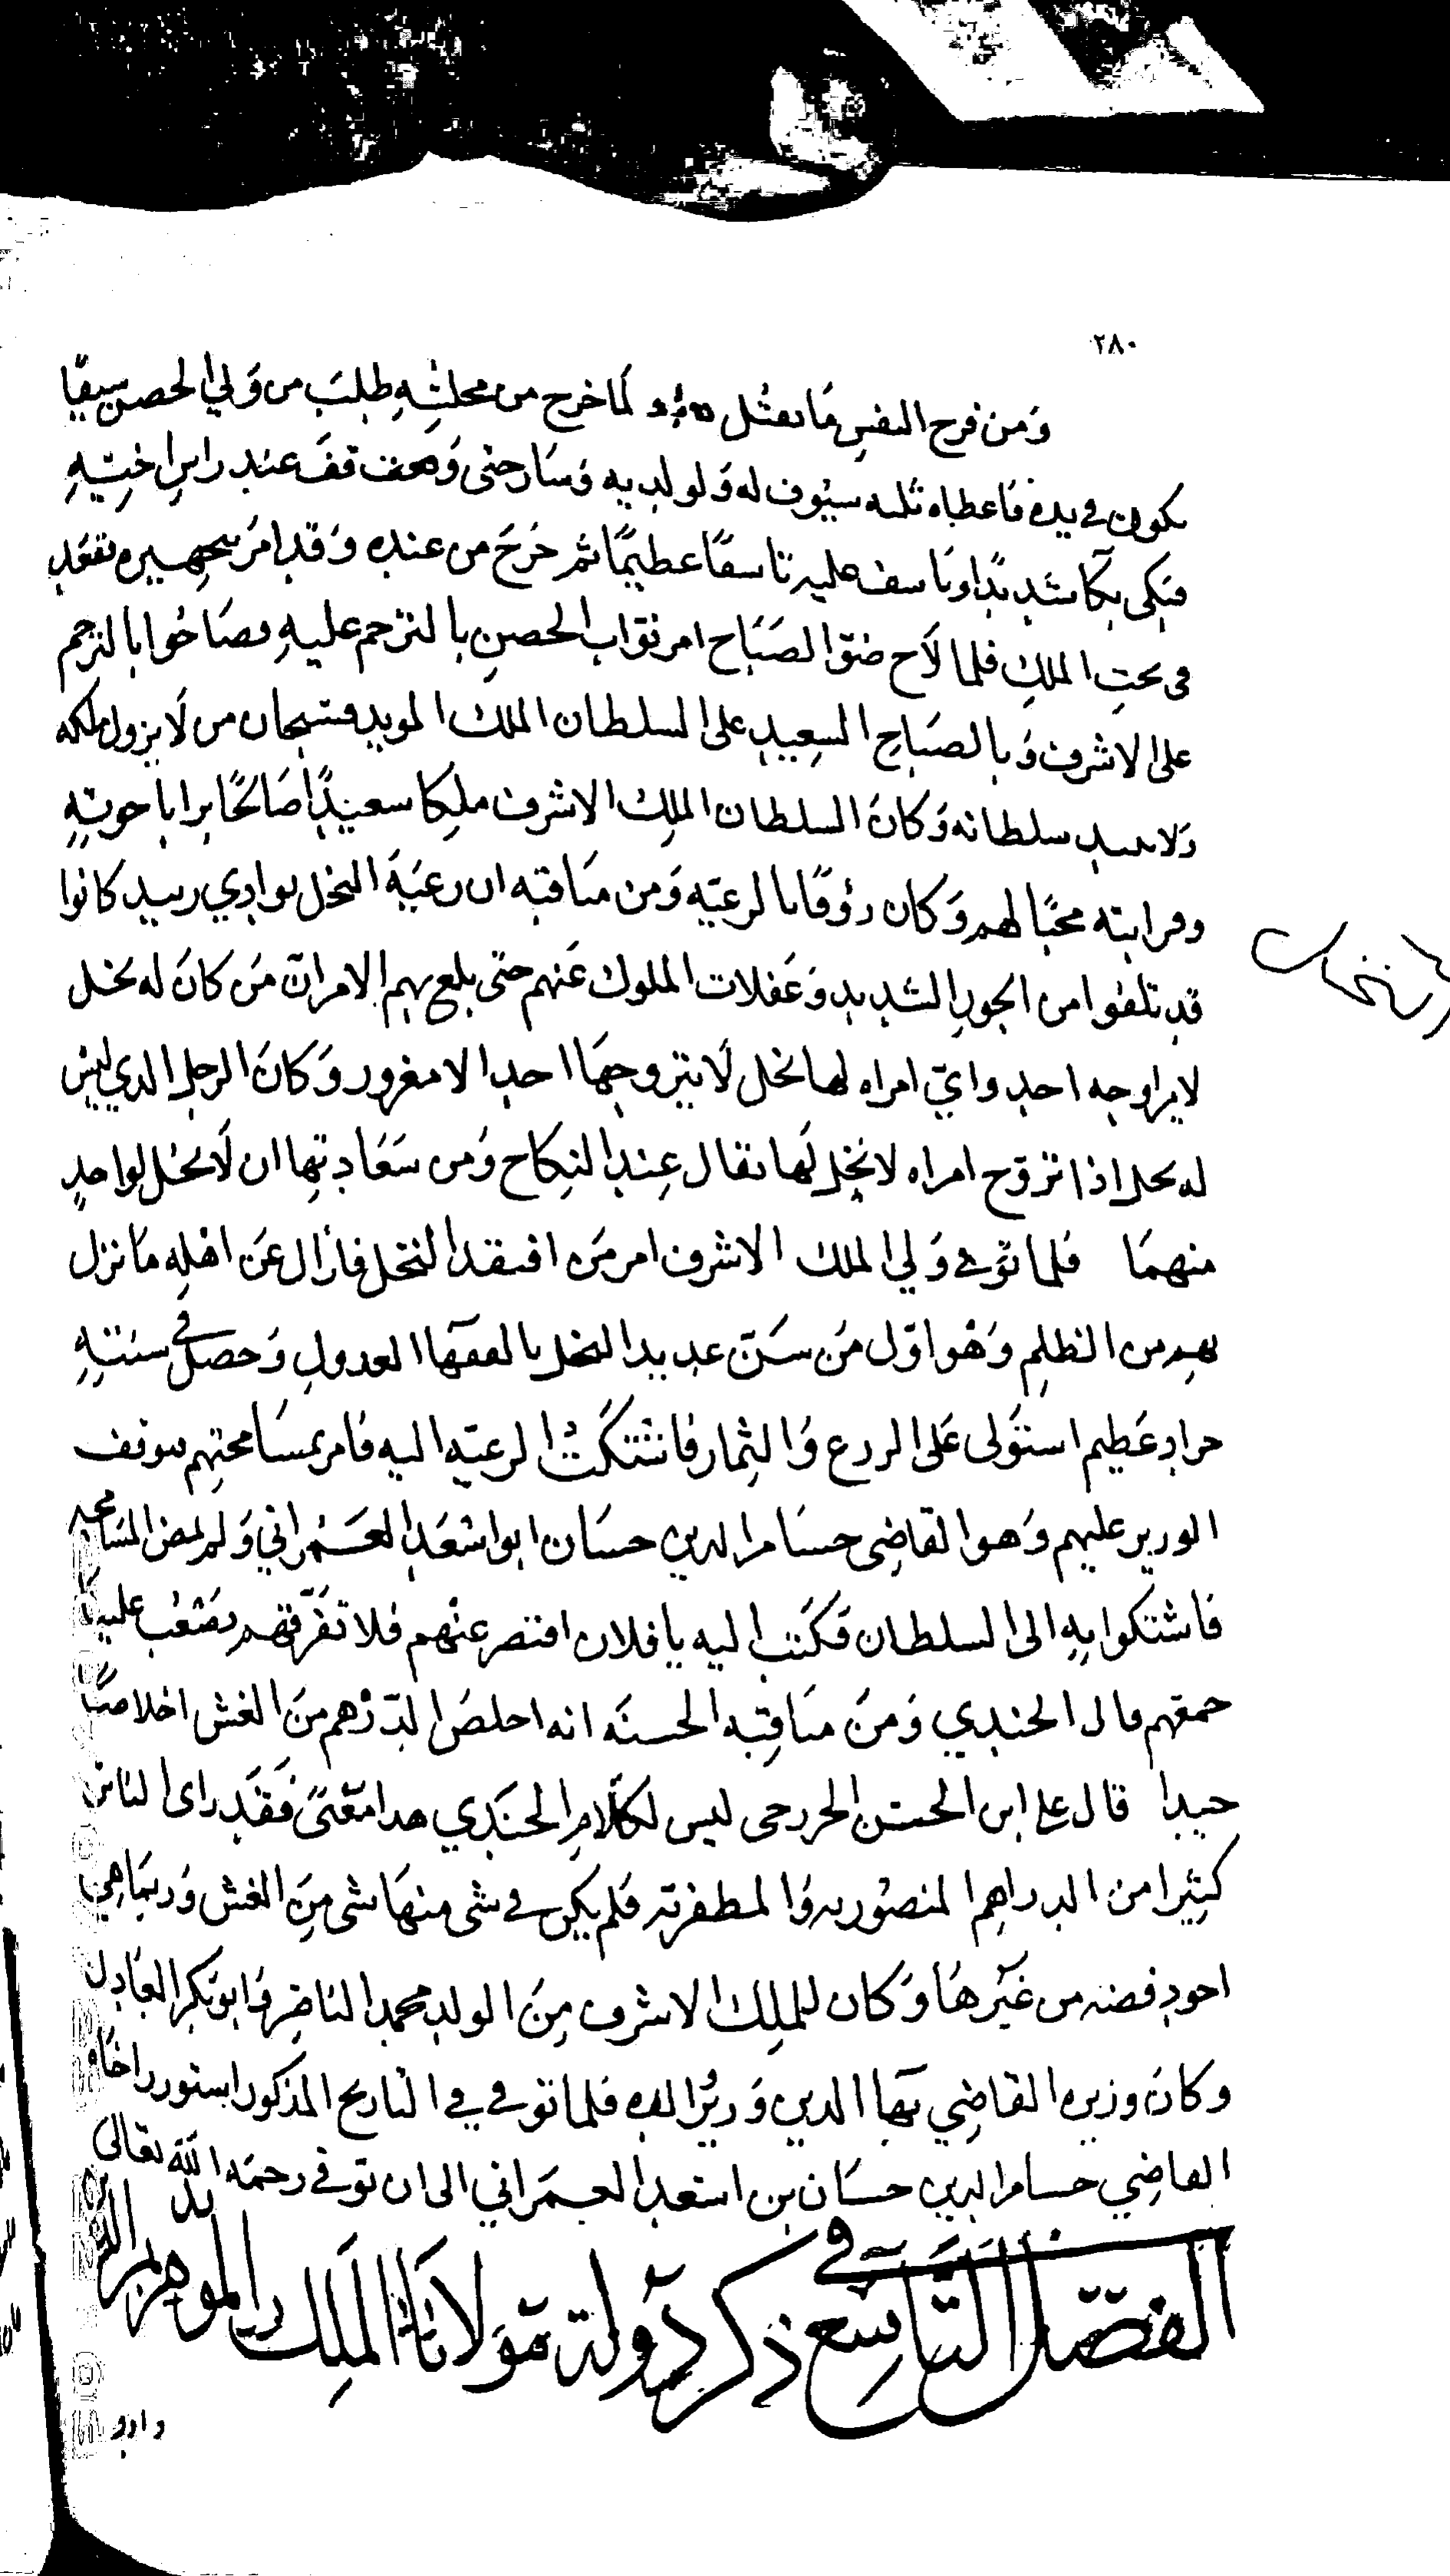 ٢٨٠
وَمن فرح النفس مَا يقتُل لمَا خرج من محلسِهِ طلبَ من وَلي الحصن سيفًا
يكون في يده فاعطاه ثلثه سيُوف له وَلولديه وَسَار حتى وَقفَ عند راس اخيهِ
فبكى بكآ شديدًا وتاسف عليه تاسفًا عظيمًا ثم خرَجَ من عنده وَقد امرَ بتجهيزه فقعد
في تحتِ الملكِ فلما لاَح ضوّ الصَبَاح امر نوّاب الحصنِ بالترحم عليهِ فصَاحُوا بالترحم
على الاشرف وَبالصَباحِ السعِيدِ على السلطان الملك المويد فسبحان من لَا يزول ملكه
وَلا يبيد سلطانه وَكانَ السلطان الملِك الاشرف ملِكا سعيدًا صَالحًا برا باخوتِهِ
وقرابته محبًا لهم وَكان رؤوفًا بالرعيّه وَمن مناقبه ان رعيَة النخل بوادي زبيد كانوا
قد تلفوا من الجورِ الشديد وَغفلات الملوك عَنهم حتى بلغ بهم الامر انّ مَن كانَ له نخل
لا يزاوجه احد وايّ امراه لها نخل لَا يتزوجهَا احد الا مغرور وَكانَ الرجل الدي ليسَ
له نخل اذا تزوّج امراه لا نخل لَها يقال عِند النِكاح وَمن سَعَادتِها ان لَا نخل لواحدٍ
منهمَا فلما توفي وَلي الملك الاشرف امر مَن افتقد النخل فازال عَن اهلِه مَا نزل
بهِم من الظلِم وَهُوَ اوّل مَن سَنّ عديد النخل بالفقهآ العدول وَحصل في سنتهِ
جراد عَظيم استوَلى عَلى الزرع وَالثِمار فاشتكَت الرعيّه اليه فامر بمسَامحتهم فتوقف
الوزير عليهم وَهو القاضِي حسَام الدين حسَان ابو اسْعَد العَمراني وَلم يمض المسَامحه
فاشتكوا بهِ الى السلطان فكتب اليه يا فلان اقتصر عنْهم فلا تفرّقهم يصَعُب عليك
جمعهم قال الجندي وَمنَ مناقِبه الحسنَه انه اخلصَ الدّرْهم منَ الغش اخلاصًا
جيدا قال علي ابن الحسن الخزرجي ليس لكلَامِ الجنَدي هدا معْنىً فَقَد راى الناس
كثِيرا من الدراهِم المنصُوريه وَالمظفريّه فلم يكن في شى منهَا شى مِنَ الغش وَربمَا هِي
اجود فضه من غيَرهَا وَكان للملِك الاشرف مِنَ الولد محمد الناضِر وَابو بَكر العَادِل
وكانَ وزيره القاضِي بهَا الدين وَزيرُ ابيه فلما توفي في التاريح المذكور استوزر اخَاه
القاضِي حسام الدين حسَان بن اسَعد العمَراني الى ان توفي رحمَه اللّه تعالى
الفصَل التاسع في ذكر دَولة مَولانَا الملِك المويد هزبر الدين
داود